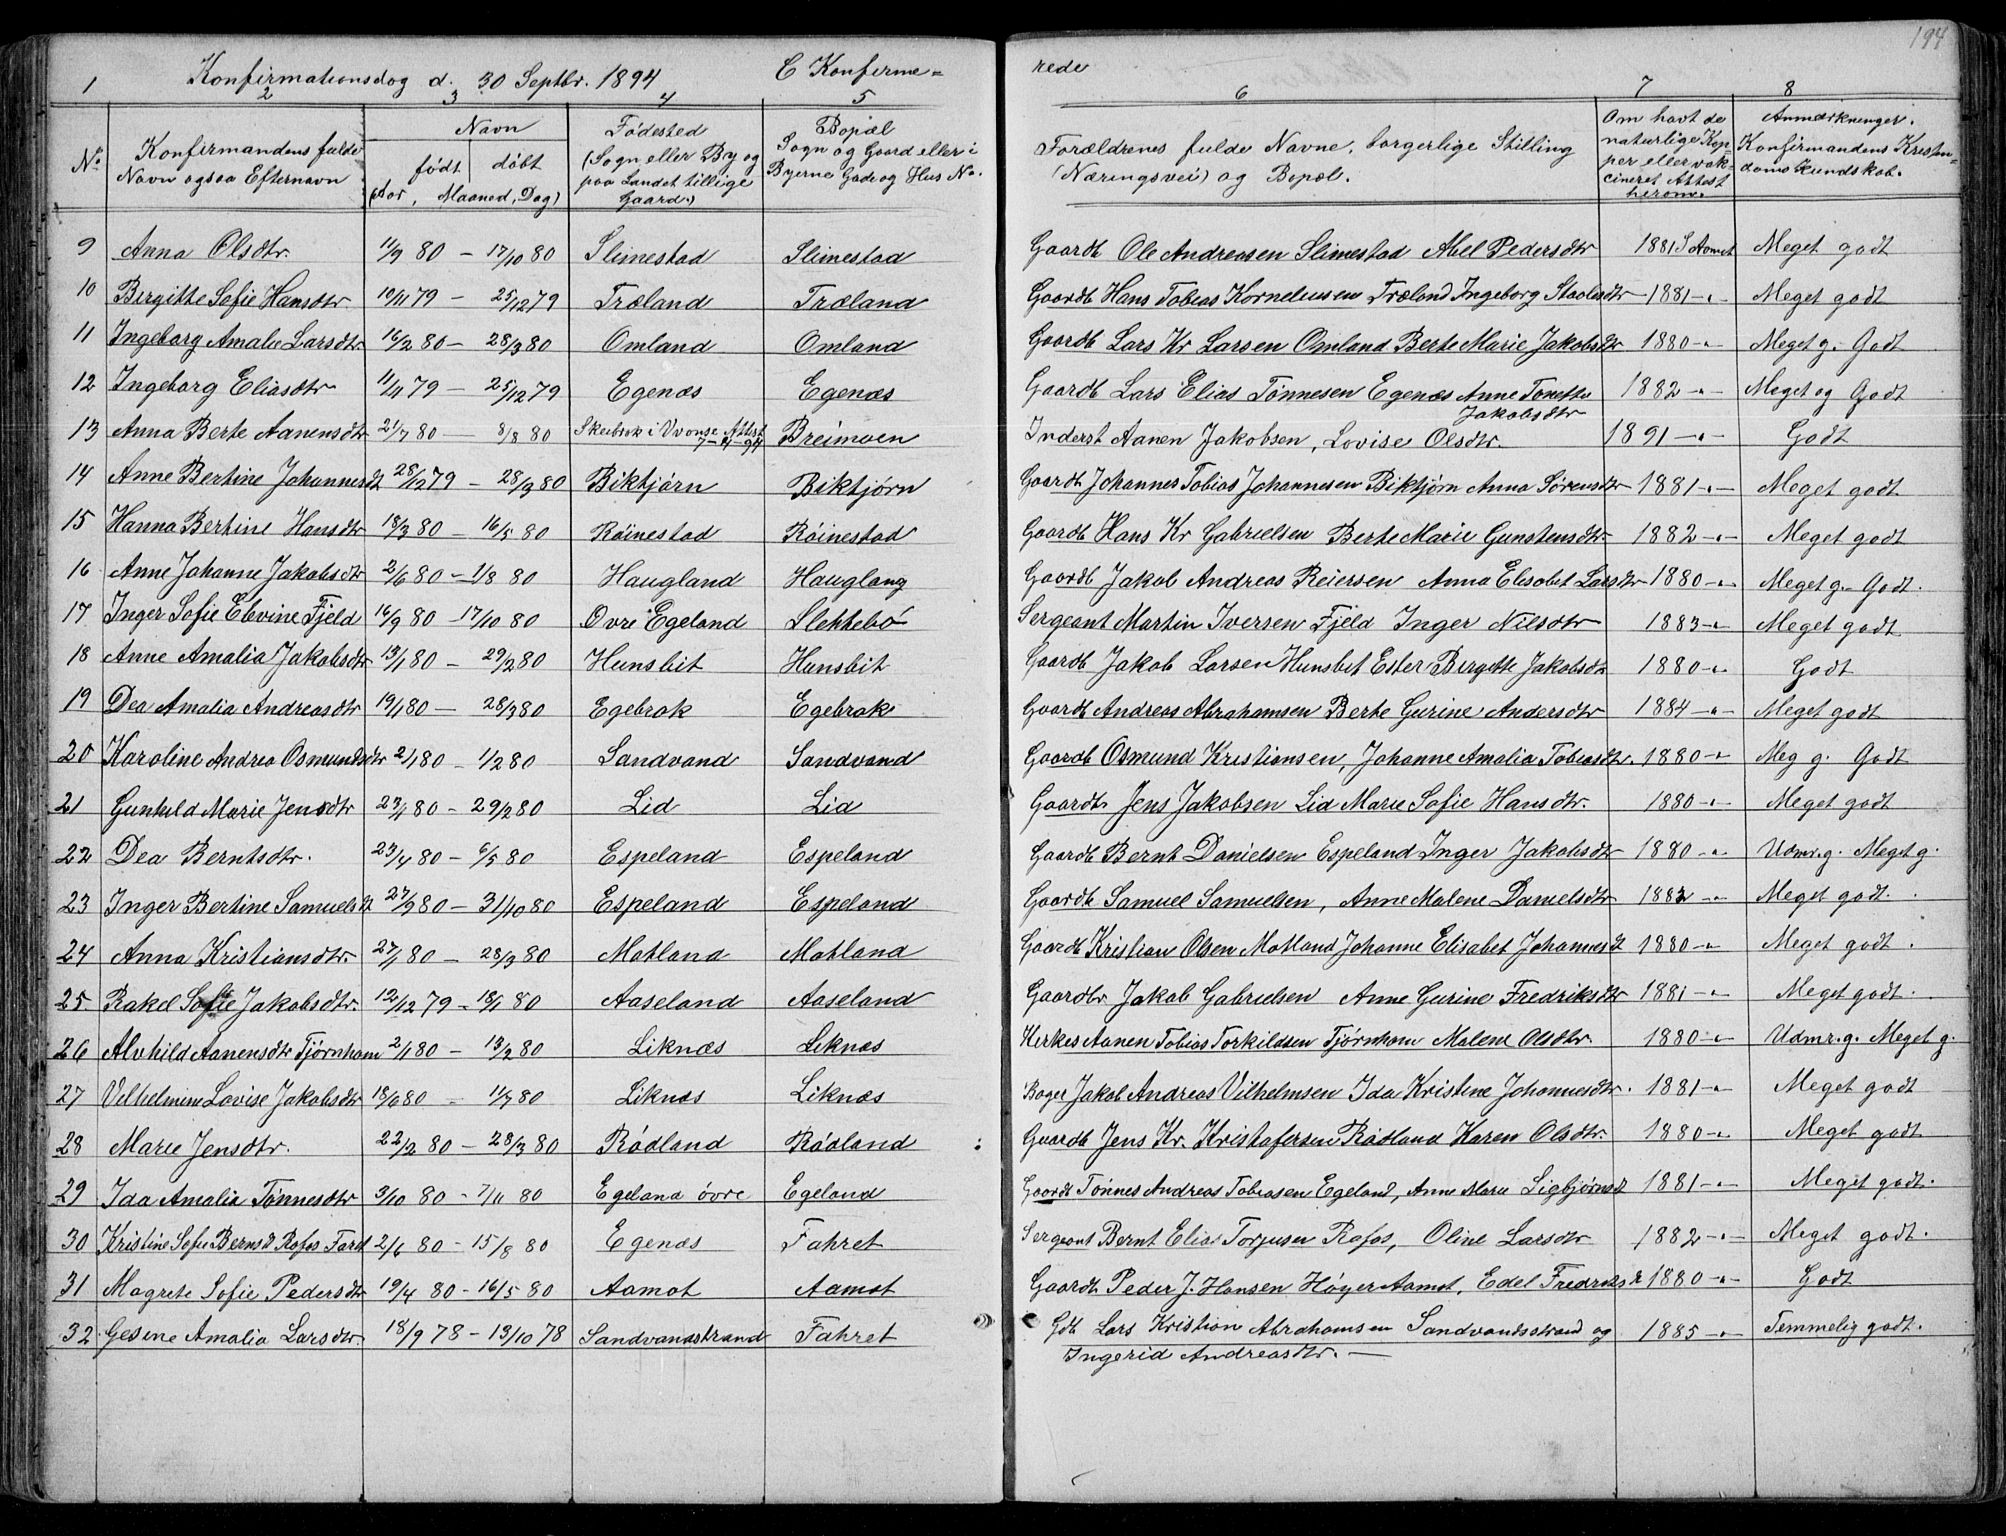 Konfirmationsdag d. 30 Septbr. 1894 C Konfirme=
rede 194
1 2 3 4 5 6 7 8
No.
Konfirmandens fulde
Navn ogsaa Efternavn
Navn
født døbt
(Aar, Maaned, Dag)
Fødested
(Sogn eller By og
paa Landet tillige
Gaard.)
Bopæl
Sogn og Gaard eller i
Byerne Gade og Hus No.
Forældrenes fulde Navne, borgerlige Stilling
(Næringsvei) og Bopæl.
Om havt de
naturlige Kop-
per eller vak-
cineret Attest
herom.
Anmærkninger.
Konfirmandens Kristen=
doms Kundskab.
9 Anna Olsdtr. 11/9 80 - 17/10 80 Slimestad Slimestad Gaardb Ole Andreasen Slimestad Abel Pedersdtr 1881 S Aamot Meget godt
10 Bergitte Sofie Hansdtr. 19/11 79 - 25/12 79 Træland Træland Gaardb Hans Tobias Korneliusen Træland Ingeborg Staalesdtr 1881 -"- Meget godt
11 Ingeborg Amalie Larsdtr 16/2 80 - 28/3 80 Omland Omland Gaardb Lars Kr Larsen Omland Berte Marie Jakobsdtr 1880 -"- Meget g. Godt
12 Ingeborg Eliasdtr 11/11 79 - 25/12 79 Egenæs Egenæs Gaardb Lars Elias Tønnesen Egenæs Anne Tonette 1882 -"- Meget og Godt
Jakobsdtr
13 Anna Berte Aanensdtr 21/7 80 - 8/8 80 Skeibrok i Vvonse Attest Breimoen Inderst Aanen Jakobsen, Lovise Olsdtr. 1891 -"- Godt
14 Anne Bertine Johannesdt 28/12 79 - 28/3 80 Biktjørn Biktjørn Gaardb Johannes Tobias Johannesen Biktjørn Anna Sørensdtr 1881 -"- Meget godt
15 Hanna Bertine Hansdtr 18/3 80 - 16/5 80 Røinestad Røinestad Gaardb Hans Kr Gabrielsen Berte Marie Gunstensdtr 1882 -"- Meget godt
16 Anne Johanne Jakobsdtr 2/6 80 - 1/8 80 Haugland Haugland Gaardb Jakob Andreas Reiersen Anna Elisabet Larsdtr 1880 -"- Meget g. Godt.
17 Inger Sofie Elevine Fjeld 16/9 80 - 17/10 80 Ovre Egeland Slettebø Sergeant Martin Iversen Fjeld Inger Nilsdtr 1883 -"- Meget godt
18 Anne Amalia Jakobsdtr 13/1 80 - 29/2 80 Hunsbit Hunsbit Gaardb Jakob Larsen Hunsbet Ester Bergitte Jakobsdtr 1880 -"- Godt
19 Dea Amalia Andreasdtr 19/1 80 - 28/3 80 Egebrok Egebrok Gaardb Andreas Abrahamsen Berte Gurine Andersdtr 1884 -"- Meget godt
20 Karoline Andrea Osmundsdtr 2/1 80 - 1/2 80 Sandvand Sandvand Gaardb Osmund Kristiansen, Johanne Amalia Tobiasdtr. 1880 -"- Meg g. Godt
21 Gunhild Marie Jensdtr 23/1 80 - 29/2 80 Lid Lid Gaardb Jens Jakobsen Lid Marie Sofie Hansdtr. 1880 -"- Meget godt
22 Dea Berntsdtr. 23/4 80 - 6/5 80 Espeland Espeland Gaardb Bernt Danielsen Espeland Inger Jakobsdtr 1880 -"- Udmr. g. Meget g.
23 Inger Bertine Samuelsdt 27/9 80 - 31/10 80 Espeland Espeland Gaardb Samuel Samuelsen, Anne Malene Danielsdtr 1882 -"- Meget godt.
24 Anna Kristiansdtr 27/1 80 - 28/3 80 Motland Motland Gaardb Kristian Olsen Motland Johanne Elisabet Johannesdt 1880 -"- Meget godt.
25 Rakel Sofie Jakobsdtr. 12/12 79 - 18/1 80 Aaseland Aaseland Gaardbr Jakob Gabrielsen Anne Gurine Fredriksdtr 1881 -"- Meget godt.
26 Alvhild Aanensdtr Tjørnhom 2/1 80 - 13/2 80 Liknæs Liknæs Kirkes Aanen Tobias Torkildsen Tjørnhom Malene Olsdtr. 1880 -"- Udmr. g. Meget g.
27 Vilhelmine Lovise Jakobsdtr 18/6 80 - 11/7 80 Liknæs Liknæs Bager Jakob Andreas Vilhelmsen Ida Kristine Johannesdtr. 1881 -"- Meget godt
28 Marie Jensdtr. 22/2 80 - 28/3 80 Rødland Rødland Gaardb Jens Kr. Kristofersen Rødland Karen Olsdtr. 1880 -"- Meget godt
29 Ida Amalia Tønnesdtr 3/10 80 - 7/11 80 Egeland øvre Egeland Gaardb Tønnes Andreas Tobiasen Egeland, Anne Marie Sigbjørnsdt 1881 -"- Meget godt.
30 Kristine Sofie Bernsdt Rafos 2/6 80 - 15/8 80 Egenæs Fahret Sergeant Bernt Elias Torjusen Rafos, Oline Larsdtr 1882 -"- Meget godt.
31 Magrete Sofie Pedersdtr 19/4 80 - 16/5 80 Aamot Aamot Gaardb Peder J. Hansen Høyer Aamot, Edel Fredriksdt 1880 -"- Godt
32 Gesine Amalia Larsdtr. 18/9 78 - 13/10 78 Sandvandstrand Fahret Gdb Lars Kristian Abrahamsen Sandvandsstrand og 1885 -"- Temmelig godt.
Ingerid Andreasdtr. —